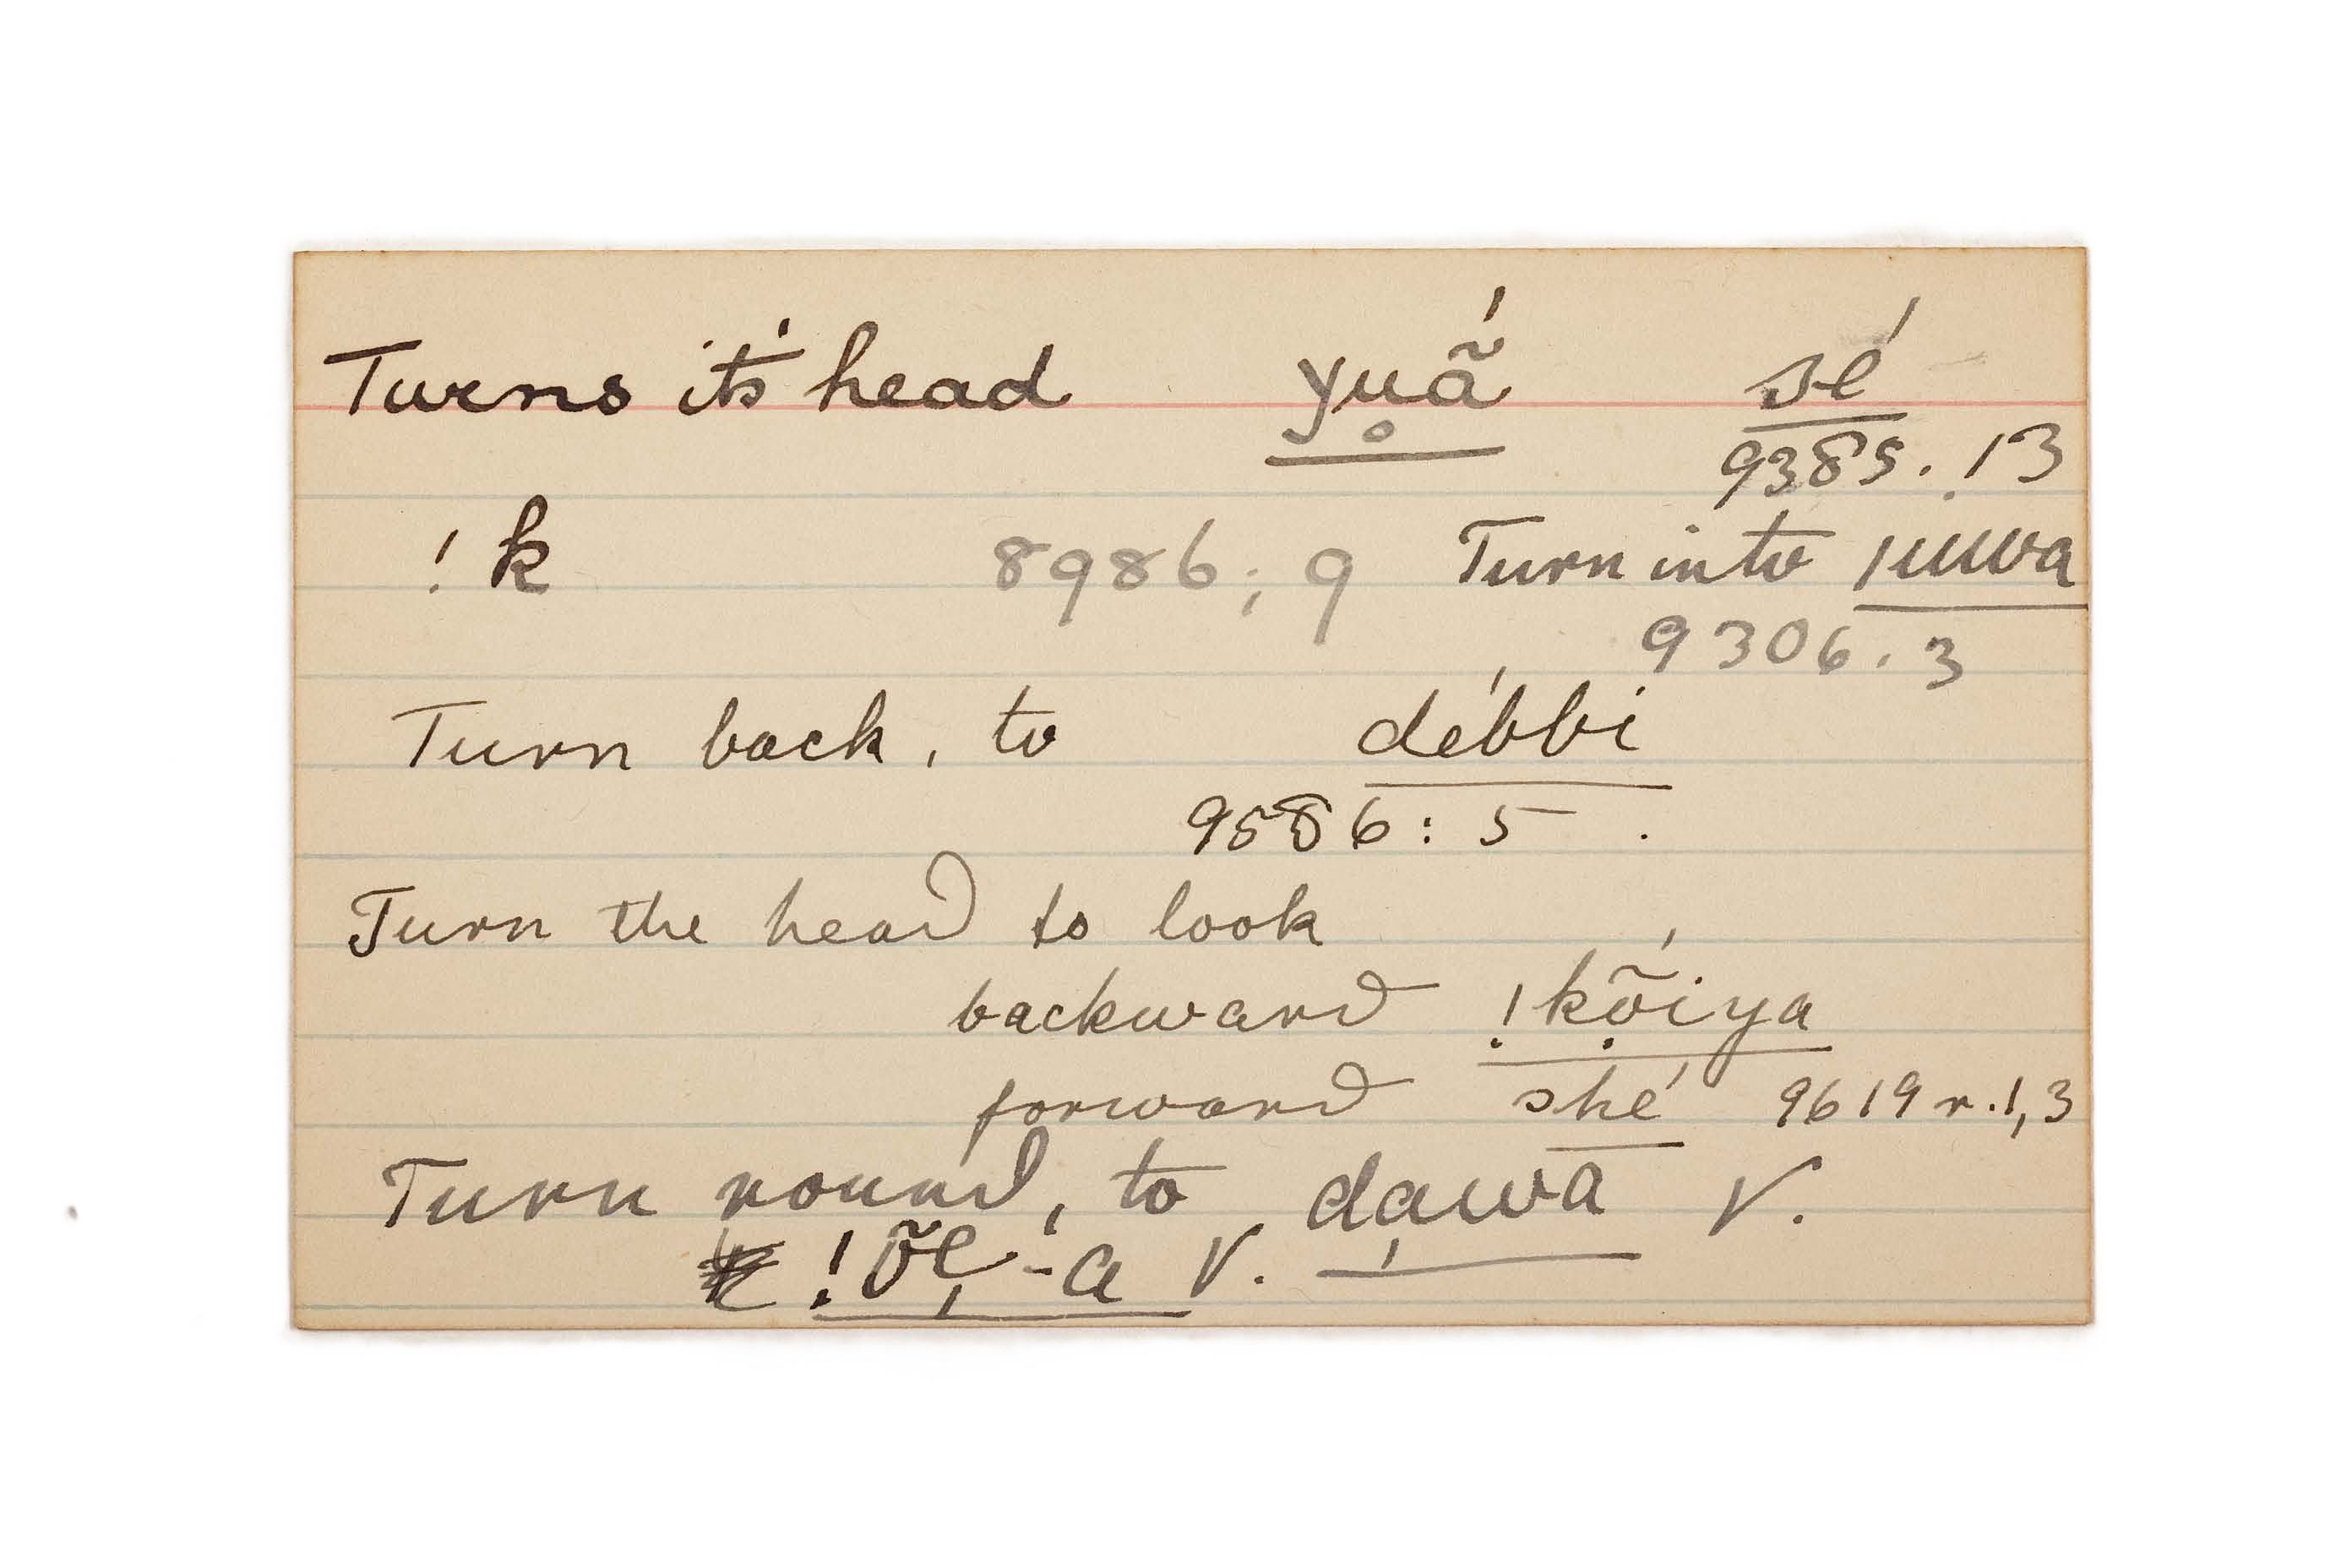 Turns it's head yṵ̊ã́ sé
9385.13
!k 8986; 9 Turn into /uwa
9306.3
Turn back, to débbi
9586: 5.
Turn the head to look
backward !kọ̃̄iya
forward shé 9619 r.1,3
Turn round, to dạwa V.
!õę-a V.